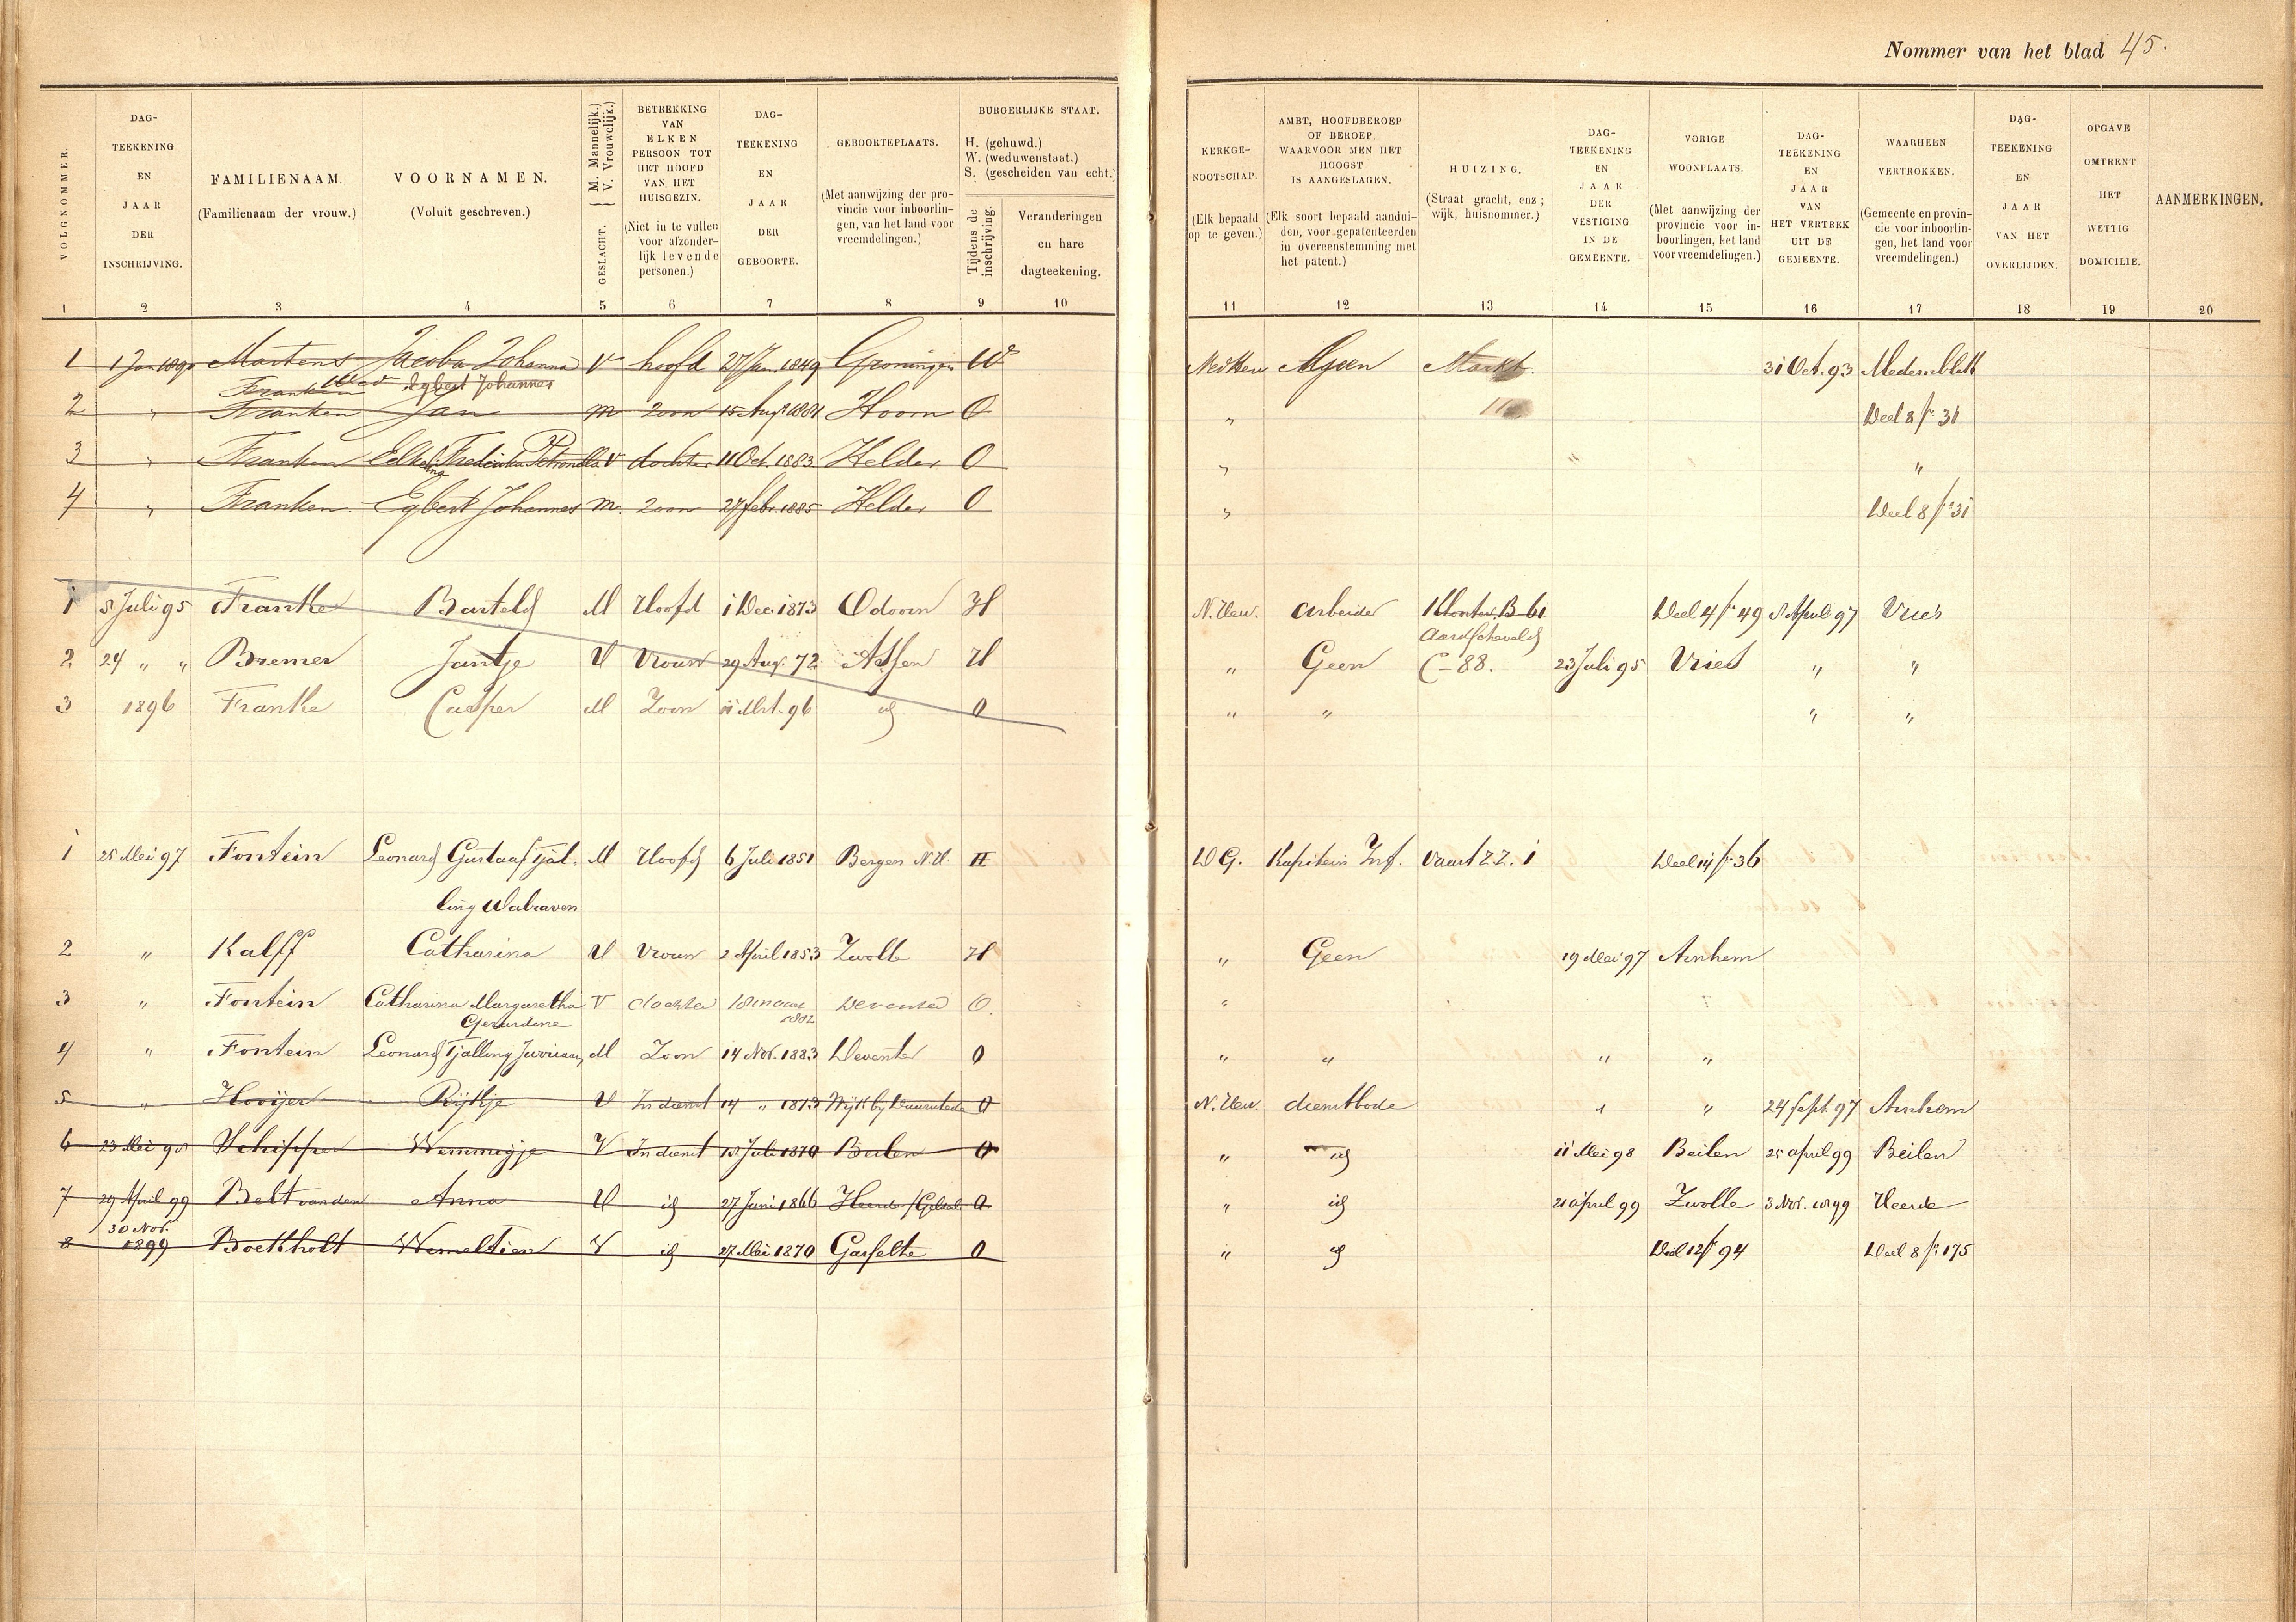 Nommer van het blad 45.
VOLGNOMMER.
DAG-
TEEKENING
EN
JAAR
DER
INSCHRIJVING.
FAMILIENAAM.
(Familienaam der vrouw.)
VOORNAMEN.
(Voluit geschreven.)
GESLACHT. { M. Mannelijk.)
V. Vrouwelijk.)
BETREKKING
VAN
ELKEN
PERSOON TOT
HET HOOFD
VAN HET
HUISGEZIN.
(Niet in te vullen
voor afzonder-
lijk levende
personen.)
DAG-
TEEKENING
EN
JAAR
DER
GEBOORTE.
GEBOORTEPLAATS.
(Met aanwijzing der pro-
vincie voor inboorlin-
gen, van het land voor
vreemdelingen.)
BURGERLIJKE STAAT.
H. (gehuwd.)
W. (weduwenstaat.)
S. (gescheiden van echt.)
Tijdens de
inschrijving.
Veranderingen
en hare
dagteekening.
KERKGE-
NOOTSCHAP.
(Elk bepaald
op te geven.)
AMBT, HOOFDBEROEP
OF BEROEP.
WAARVOOR MEN HET
HOOGST
IS AANGESLAGEN.
(Elk soort bepaald aandui-
den, voor gepatenteerden
in overeenstemming met
het patent.)
HUIZING.
(Straat gracht, enz;
wijk, huisnommer.)
DAG-
TEEKENING
EN
JAAR
DER
VESTIGING
IN DE
GEMEENTE.
VORIGE
WOONPLAATS.
(Met aanwijzing der
provincie voor in-
boorlingen, het land
voor vreemdelingen.)
DAG-
TEEKENING
EN
JAAR
VAN
HET VERTREK
UIT DE
GEMEENTE.
WAARHEEN
VERTROKKEN.
(Gemeente en provin-
cie voor inboorlin-
gen, het land voor
vreemdelingen.)
DAG-
TEEKENING
EN
JAAR
VAN HET
OVERLIJDEN.
OPGAVE
OMTRENT
HET
WETTIG
DOMICILIE.
AANMERKINGEN.
1 2 3 4 5 6 7 8 9 10 11 12 13 14 15 16 17 18 19 20
1 1 Jan 1890 Martens Jacoba Johanna V hoofd 27 Jan. 1849 Groningen W Ned Herv Geen Markt. 31 Oct. 93 Medemblik
Franken Wed Egbert Johannes
2 " Franken Jan M zoon 15 Aug. 1881 Hoorn O " Deel 8 fo 31
3 " Franken Frederika Petronella V dochter 11 Oct. 1883 Helder O " " "
4 " Franken Egbert Johannes M. zoon 27 febr. 1885 Helder O " Deel 8 fo 31
1 5 Juli 95 Franke Barteld M Hoofd 1 Dec. 1873 Odoorn H N. Herv. arbeider Klooster B 61 Deel 4 fo 49 8 April 97 Vries
Aardscheveld
2 24 " " Bremer Jantje V Vrouw 29 Aug. 72 Assen H " Geen C-88. 23 Juli 95 Vries " "
3 1896 Franke Casper M Zoon 11 Mrt. 96 id O " " " "
1 25 Mei 97 Fontein Leonard Gustaaf Tjal- M Hoofd 6 Juli 1851 Bergen N.H. H D G. Kapitein Inf. Vaart Z Z. 1 Deel 14 fo 36
ling Walraven
2 " Kalff Catharina V Vrouw 2 April 1853 Zwolle H " Geen 19 Mei 97 Arnhem
3 " Fontein Catharina Margaretha V dochter 18 maart Deventer O. "
Gerardine 1882
4 " Fontein Leonard Tjalling Juriaan M Zoon 14 Nov. 1883 Deventer O " " " "
5 " Hooijer Rijkje V In dienst 14 " 1873 Wijk bij Duurstede O N. Herv. dienstbode " " 24 Sept. 97 Arnhem
6 23 Mei 98 Schipper Wemmigje V In dienst 13 Juli 1870 Beilen O " id 11 Mei 98 Beilen 25 april 99 Beilen
7 29 April 99 Belt van den Anna V id 27 Juni 1866 Heerde O " id 21 april 99 Zwolle 3 Nov. 1899 Heerde
30 Nov.
8 1899 Boekholt Wemeltien V id 27 Mei 1870 Gasselte O " id Deel 12 fo 94 Deel 8 fo 175